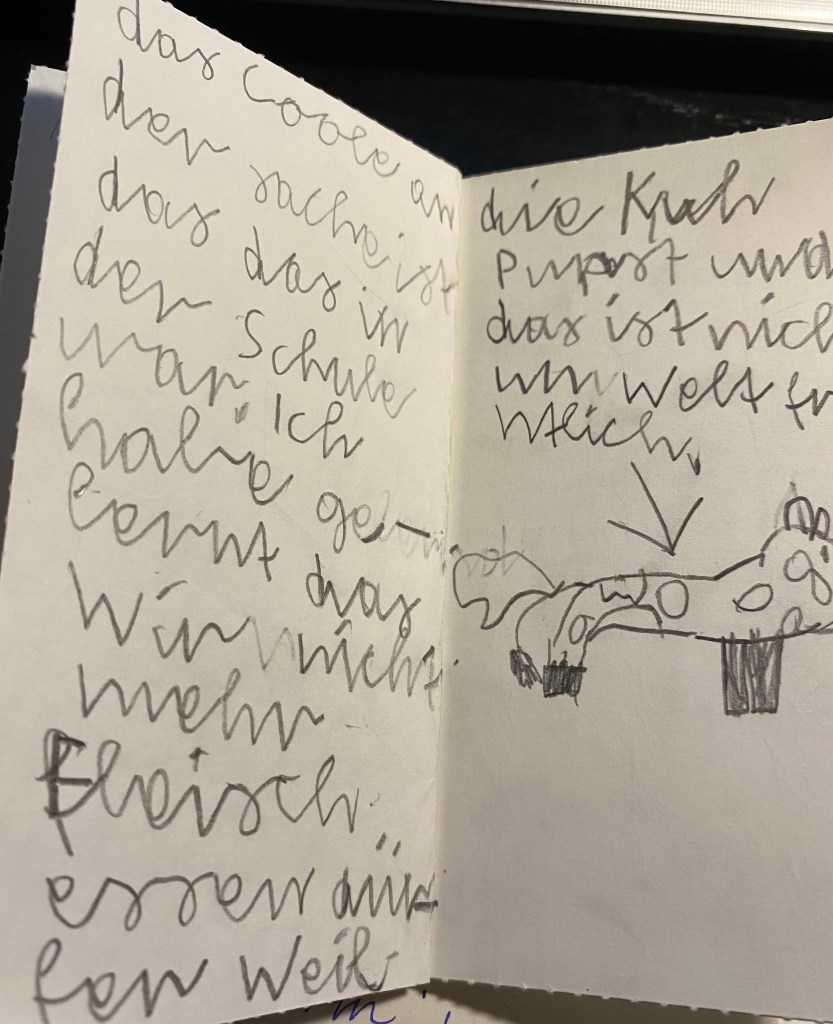 das Coole an
der sache ist
das das in
der Schule
war. Ich
habe ge-
lernt das
Wir nicht
mehr
Fleisch
essen dür-
fen Weil
die Kuh
Pupst und
das ist nich
um Welt fr
ntlich.